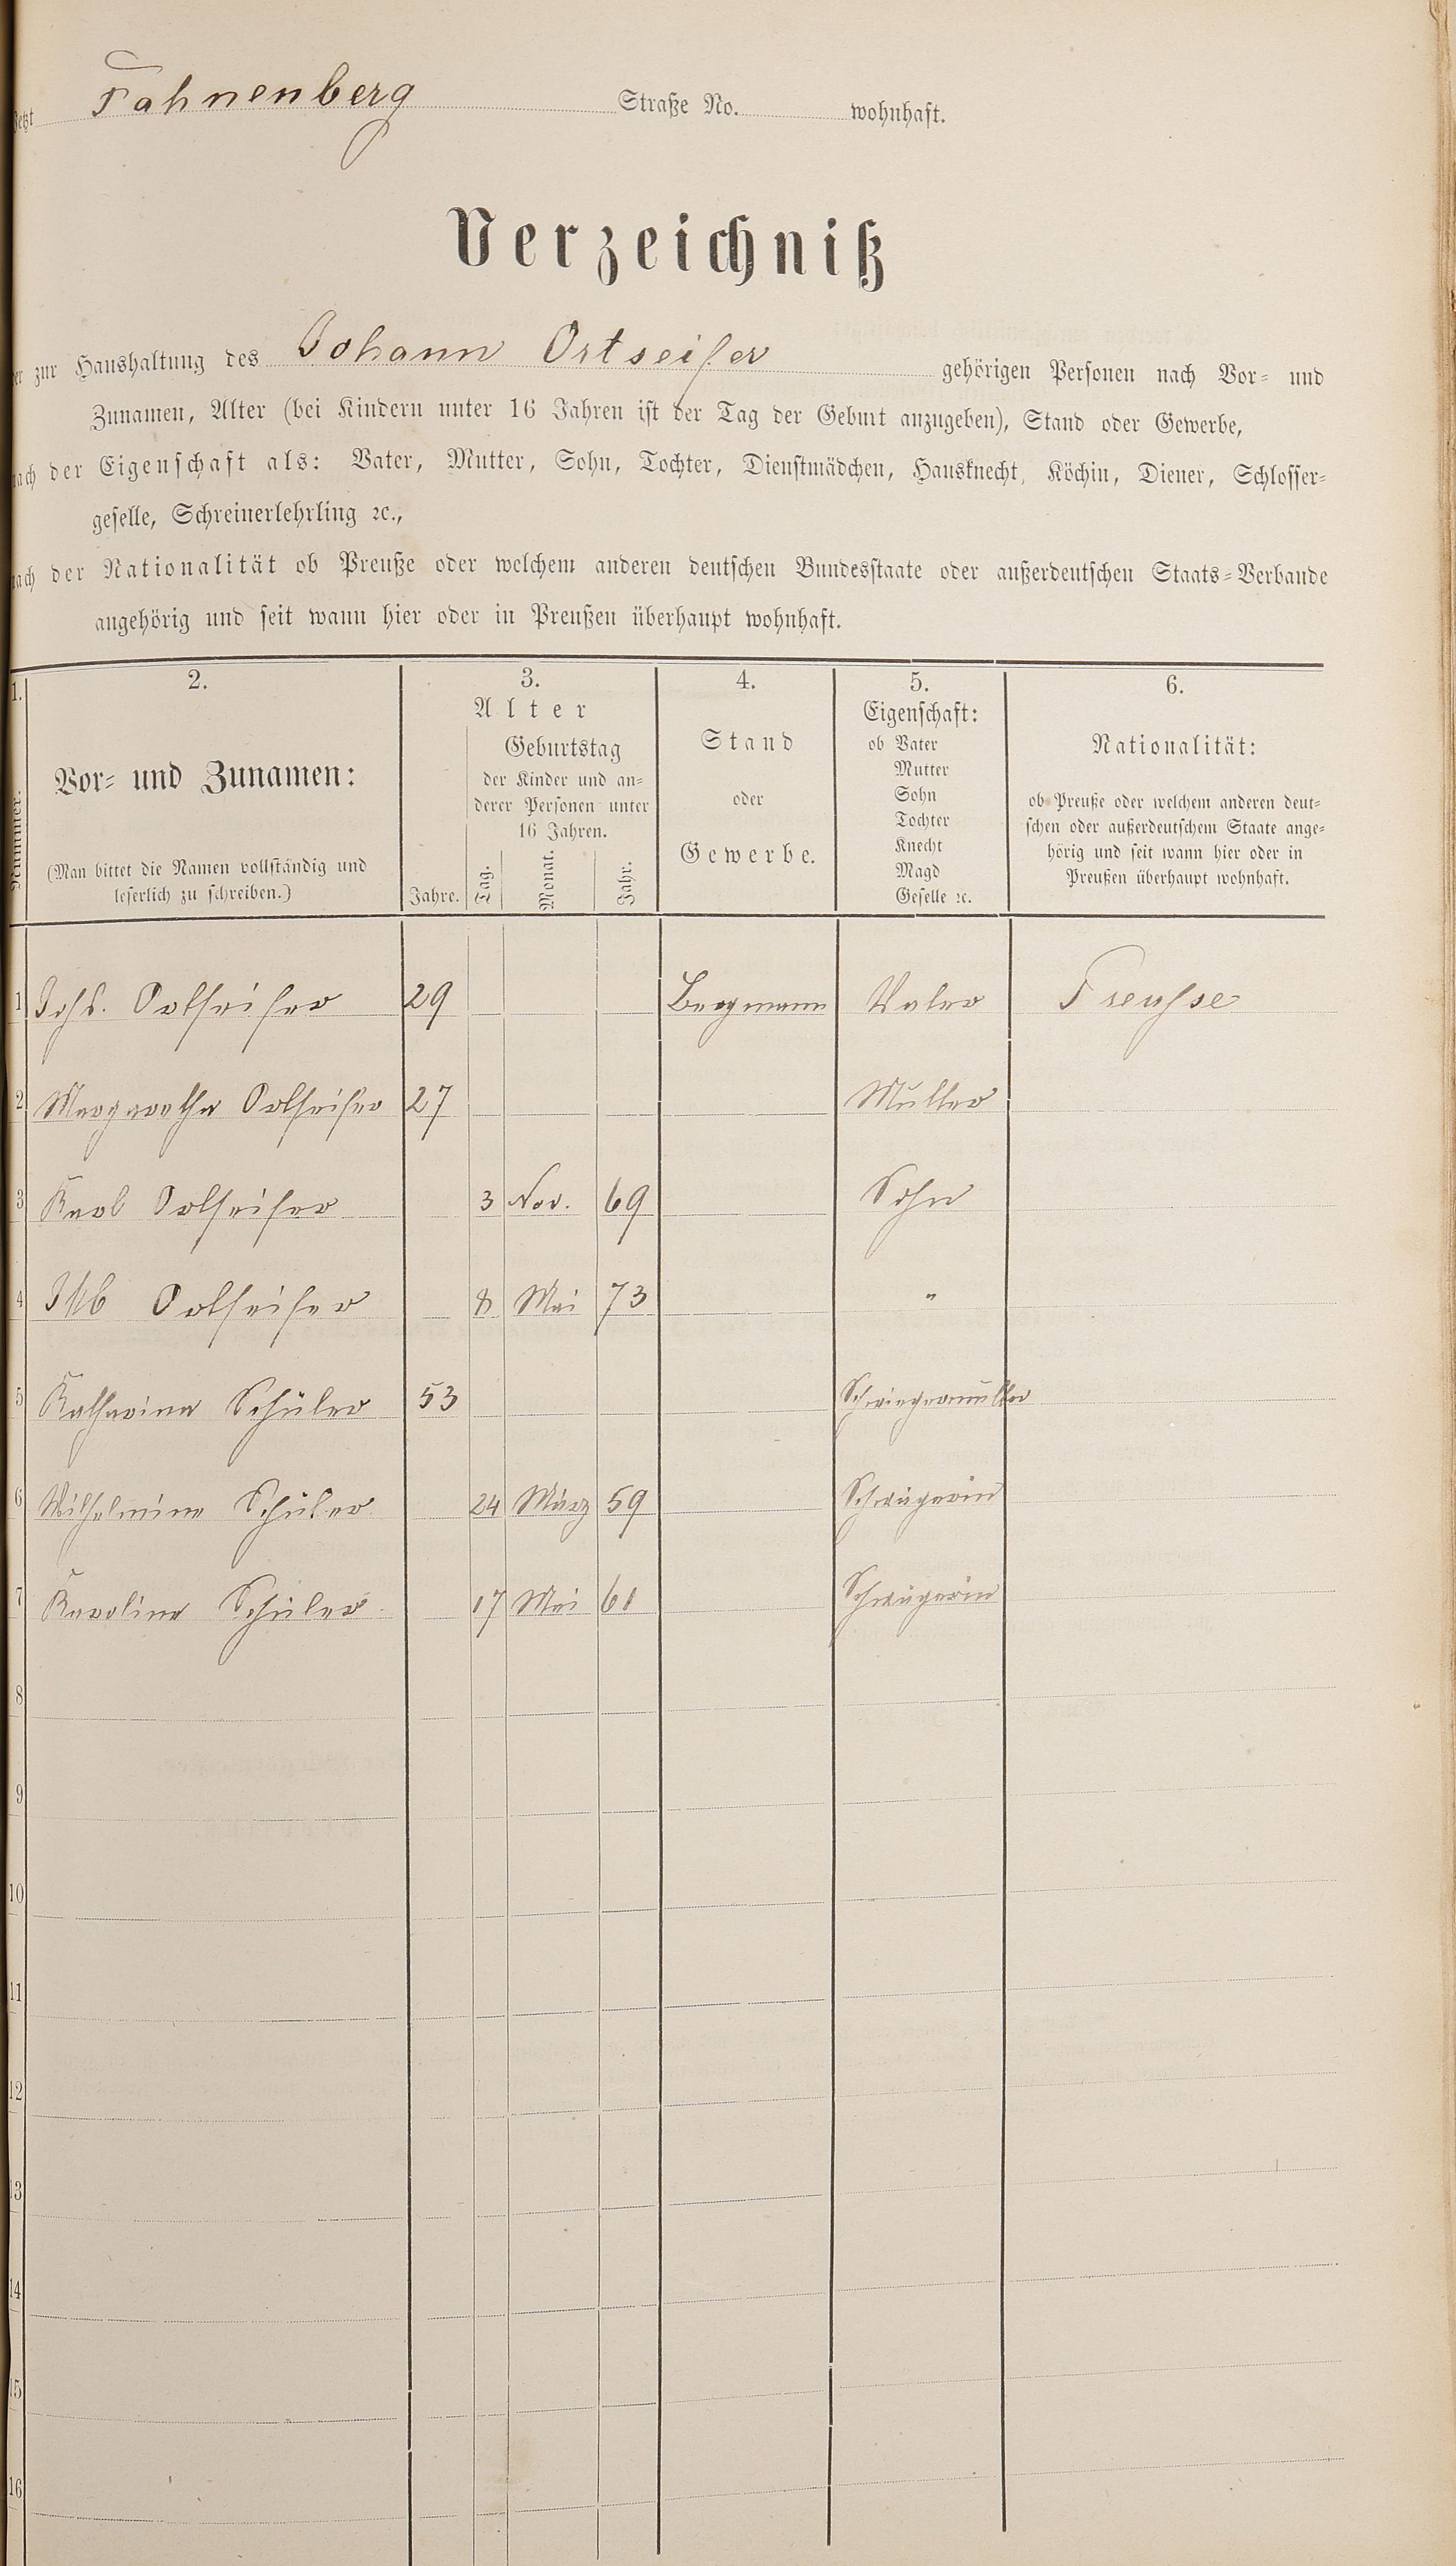 jetzt Fahnenberg Straße No. wohnhaft.
Verzeichniß
der zur Haushaltung des Johann Ortseifer gehörigen Personen nach Vor- und
Zunamen, Alter (bei Kindern unter 16 Jahren ist der Tag der Geburt anzugeben), Stand oder Gewerbe,
nach der Eigenschaft als: Vater, Mutter, Sohn, Tochter, Dienstmädchen, Hausknecht, Köchin, Diener, Schlosser-
geselle, Schreinerlehrling ꝛc.,
nach der Nationalität ob Preuße oder welchem anderen deutschen Bundesstaate oder außerdeutschen Staats-Verbande
angehörig und seit wann hier oder in Preußen überhaupt wohnhaft.
1. 2. 3. 4. 5. 6.
Nummer.
Vor- und Zunamen:
(Man bittet die Namen vollständig und
leserlich zu schreiben.)
Alter
Geburtstag
der Kinder und an-
derer Personen unter
16 Jahren.
Jahre. Tag. Monat. Jahr.
Stand
oder
Gewerbe.
Eigenschaft:
ob Vater
Mutter
Sohn
Tochter
Knecht
Magd
Geselle ꝛc.
Nationalität:
ob Preuße oder welchem anderen deut-
schen oder außerdeutschem Staate ange-
hörig und seit wann hier oder in
Preußen überhaupt wohnhaft.
1 Joh. Ortseifer 29 Bergmann Vater Preusse
2 Margaretha Ortseifer 27 Mutter
3 Karl Ortseifer 3 Nov. 69 Sohn
4 Ortseifer 8 Mai 73 "
5 Katharina Schüler 53 Schwiegermutter
6 Wilhelmine Schüler 24 März 59 Schwägerin
7 Karoline Schüler 17 Mai 61 Schwägerin
8
9
10
11
12
13
14
15
16